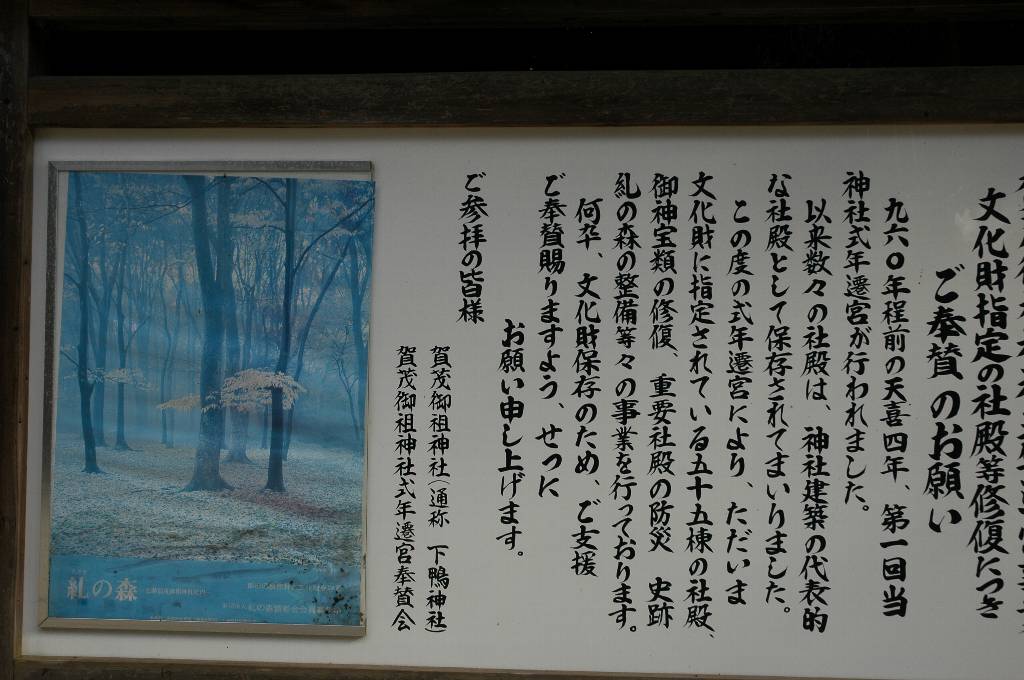 文化財指定の社殿等修復につき
ご奉賛のお願い
九六〇年程前の天喜四年、第一回当
神社式年遷宮が行われました。
以来数々の社殿は、神社建築の代表的
な社殿として保存されてまいりました。
この度の式年遷宮により、ただいま
文化財に指定されている五十五棟の社殿、
御神宝類の修復、重要社殿の防災 史跡
糺の森の整備等々の事業を行っております。
何卒、文化財保存のため、ご支援
ご奉賛賜りますよう、せつに
お願い申し上げます。
ご参拝の皆様
賀茂御祖神社(通称 下鴨神社)
賀茂御祖神社式年遷宮奉賛会
糺の森